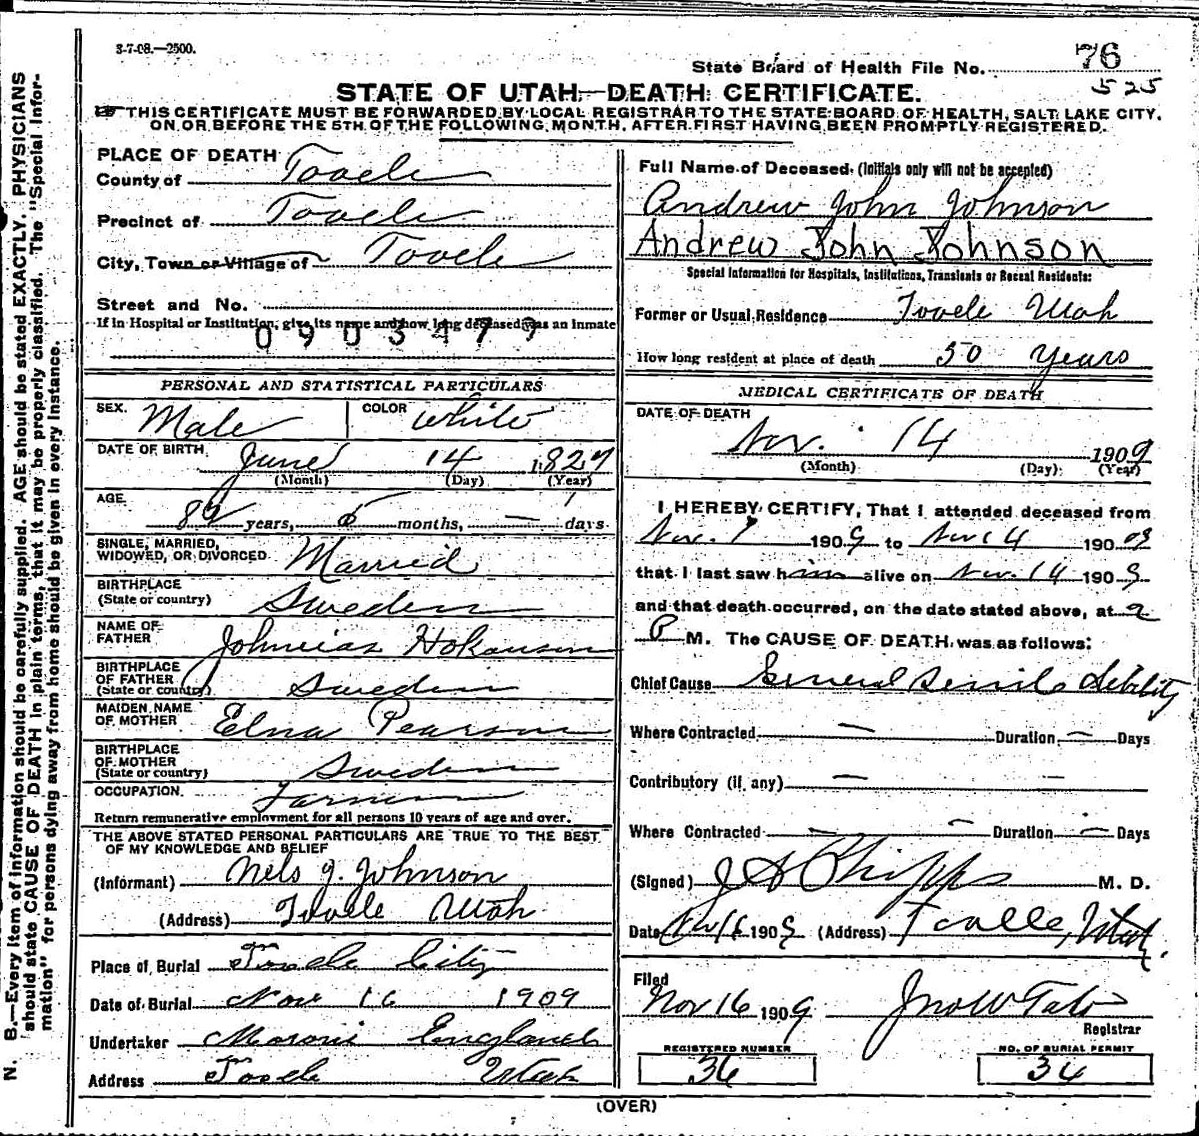 3-7-08.—2500.
State Board of Health File No. 76
525
STATE OF UTAH—DEATH CERTIFICATE.
THIS CERTIFICATE MUST BE FORWARDED BY LOCAL REGISTRAR TO THE STATE BOARD OF HEALTH, SALT LAKE CITY,
ON OR BEFORE THE 5TH OF THE FOLLOWING MONTH, AFTER FIRST HAVING BEEN PROMPTLY REGISTERED.
N. B.—Every item of information should be carefully supplied. AGE should be stated EXACTLY. PHYSICIANS
should state CAUSE OF DEATH in plain terms, that it may be properly classified. The "Special Infor-
mation" for persons dying away from home should be given in every instance.
PLACE OF DEATH
County of Tooele
Precinct of Tooele
City, Town or Village of Tooele
Street and No.
If in Hospital or Institution, give its name and how long deceased was an inmate
0903479
PERSONAL AND STATISTICAL PARTICULARS
SEX. Male COLOR White
DATE OF BIRTH. June 14 1827
(Month) (Day) (Year)
AGE 82 years, 5 months, — days
SINGLE, MARRIED,
WIDOWED, OR DIVORCED Married
BIRTHPLACE
(State or country) Sweden
NAME OF
FATHER Hokanson
BIRTHPLACE
OF FATHER
(State or country) Sweden
MAIDEN NAME
OF MOTHER Elna Pearson
BIRTHPLACE
OF MOTHER
(State or country) Sweden
OCCUPATION. Farmer
Return remunerative employment for all persons 10 years of age and over.
THE ABOVE STATED PERSONAL PARTICULARS ARE TRUE TO THE BEST
OF MY KNOWLEDGE AND BELIEF
(Informant) Nels J. Johnson
(Address) Tooele Utah
Place of Burial Tooele City
Date of Burial Nov 16 1909
Undertaker Moroni England
Address Tooele Utah
Full Name of Deceased. (Initials only will not be accepted)
Andrew John Johnson
Andrew John Johnson
Special Information for Hospitals, Institutions, Transients or Recent Residents:
Former or Usual Residence Tooele Utah
How long resident at place of death 50 Years
MEDICAL CERTIFICATE OF DEATH
DATE OF DEATH
Nov. 14 1909
(Month) (Day) (Year)
I HEREBY CERTIFY, That I attended deceased from
Nov. 7 1909 to Nov 14 190 09
that I last saw him alive on Nov. 14 1909
and that death occurred, on the date stated above, at 2
P M. The CAUSE OF DEATH was as follows:
Chief Cause General Senile debility
Where Contracted — Duration — Days
Contributory (if any) — —
Where Contracted — Duration — Days
(Signed) J A Phipps M. D.
Date Nov 16 1909 (Address) Tooele, Utah.
Filed
Nov 16 1909 Jno W Tate
Registrar
REGISTERED NUMBER
36
NO. OF BURIAL PERMIT
34
(OVER)